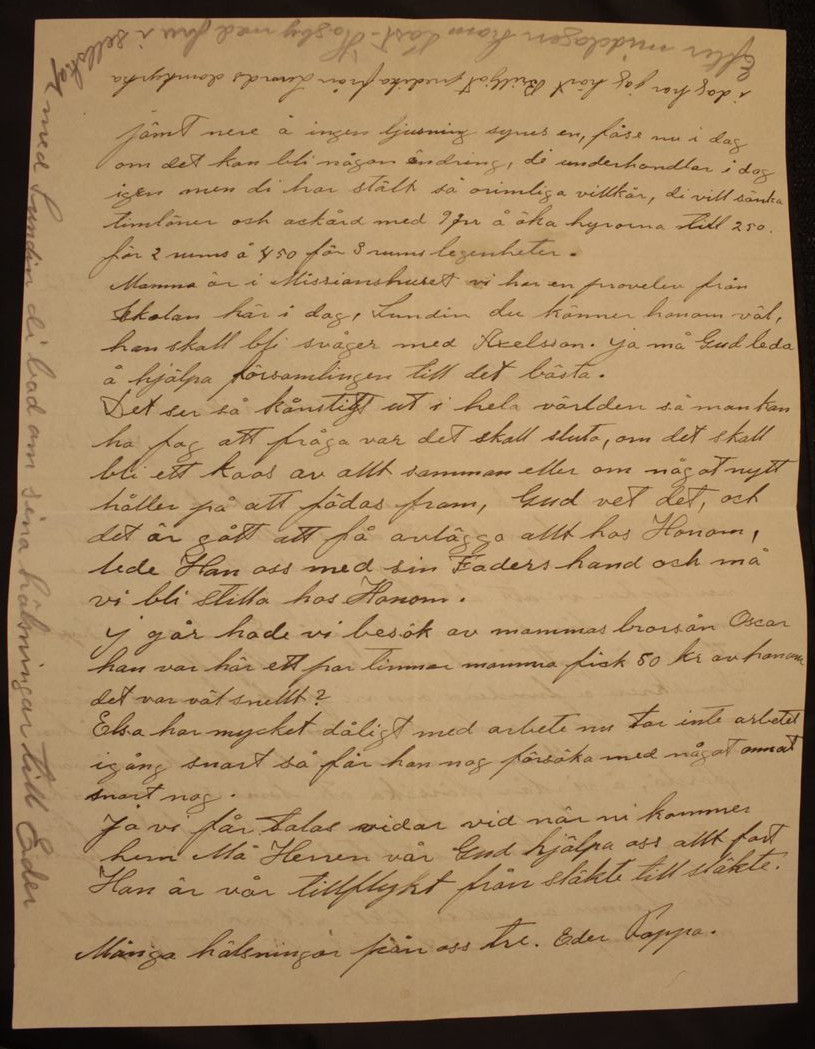 jämt nere å ingen ljusning synes en, fåse nu i dag
om det kan bli någon ändring, di underhandlar i dag
igen men di har stält så orimliga villkår, di vill sänka
timlöner och ackård med å öka hyrorna till 250.
för 2 rums å 450 för 3 rums legenheter.
Mamma är i Missianshuset vi har en provelev från
Skolan här i dag, Lundin du känner honom väl,
han skall bli svåger med Axelsson. ja må Gud leda
å hjälpa församlingen till det bästa.
Det ser så kånstigt ut i hela världen så man kan
ha fog att fråga var det skall sluta, om det skall
bli ett kaos av allt samman eller om något nytt
håller på att födas fram, Gud vet det, och
det är gått att få avlägga allt hos Honom,
lede Han oss med sin Faders hand och må
vi bli stilla hos Honom.
I går hade vi besök av mammas brorsån Oscar
han var här ett par timmar mamma fick 50 kr av honom
det var väl snellt?
Elsa har mycket dåligt med arbete nu tar inte arbetet
igång snart så får han nog försöka med något annat
snart nog.
Ja vi får talas vidar vid när ni kommer
hem Må Herren vår Gud hjälpa oss allt fort
Han är vår tillflykt från släkte till släkte.
Många hälsningar från oss tre. Eder Pappa.
i dag har jag hört Brilljot predika från Lunds domkyrka
Efter middagen kom Hagby med fru i sellskap
med Lundin di bad om sina hälsningar till Eder